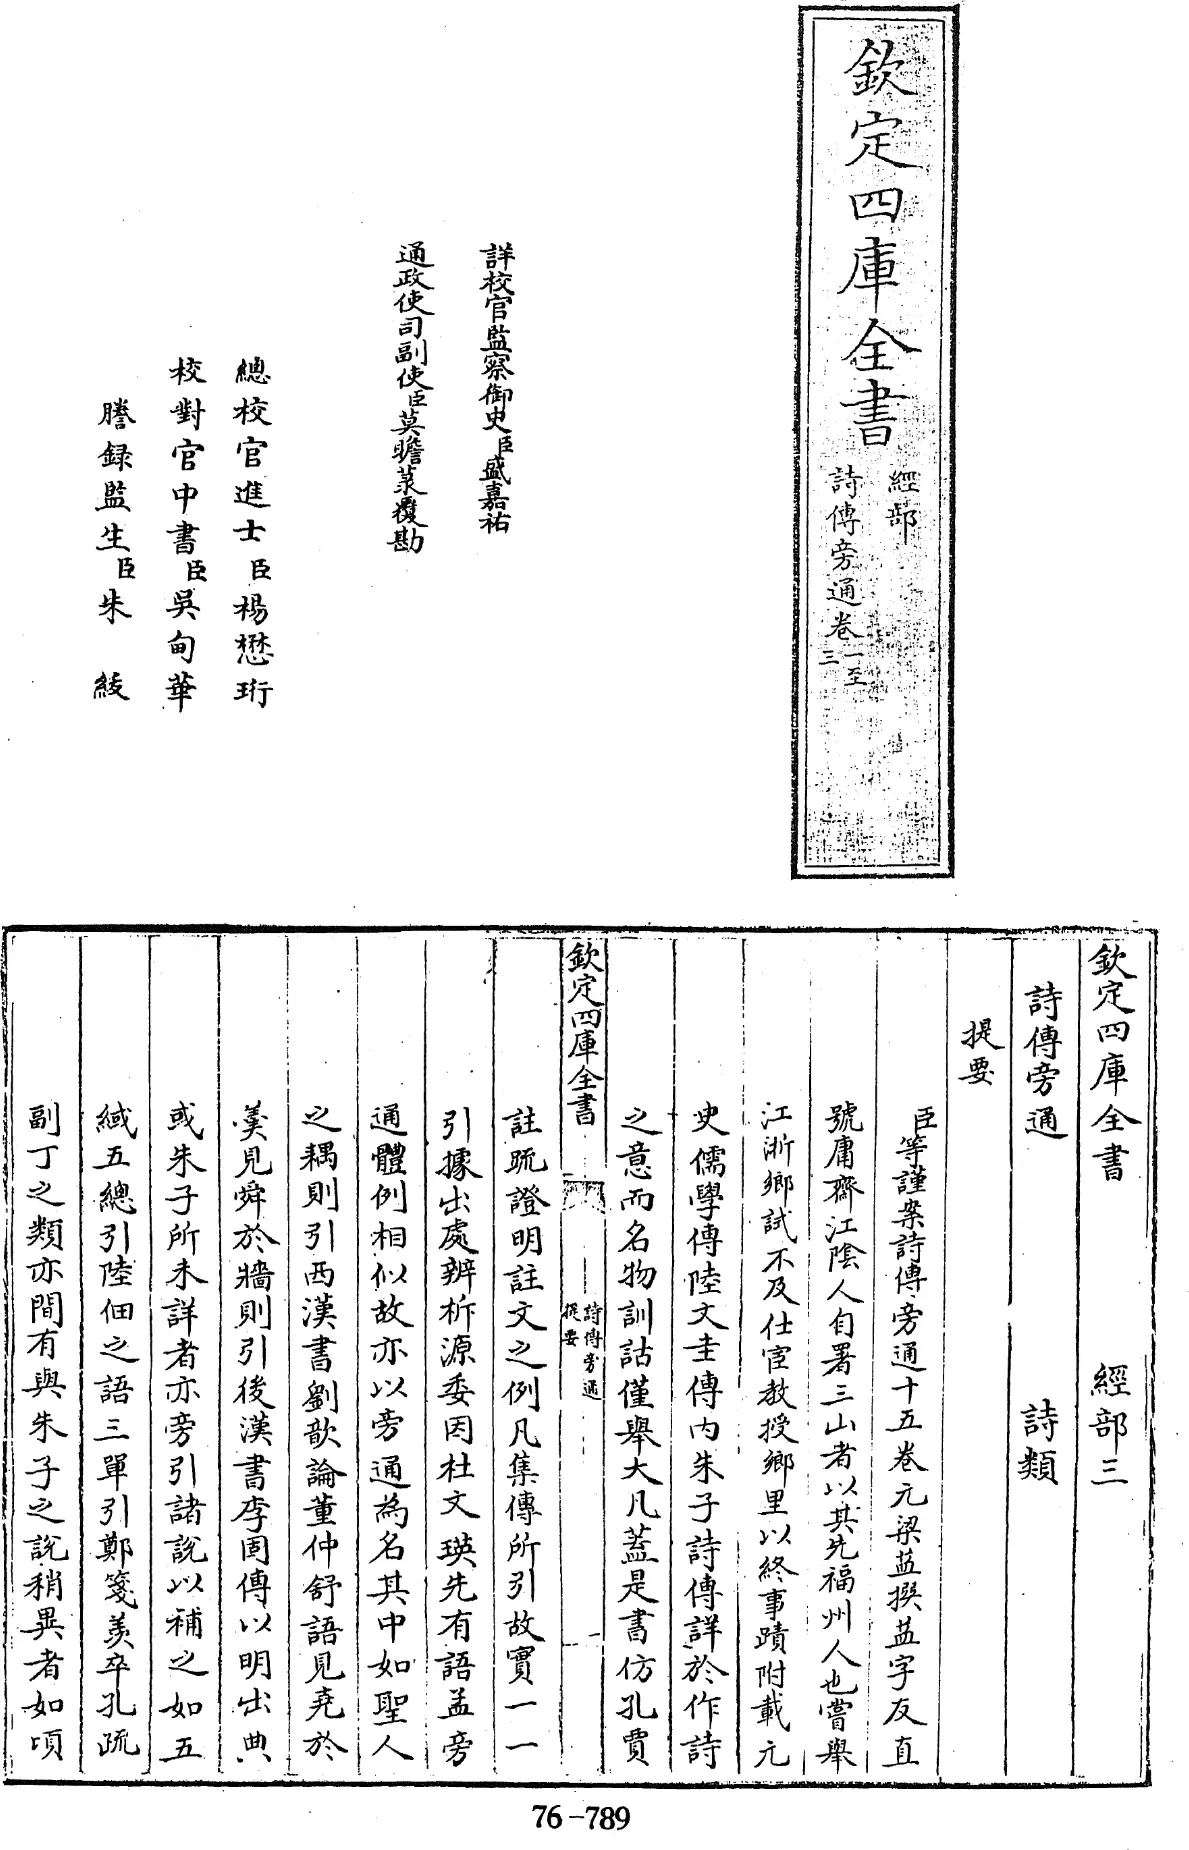 欽定四庫全書
經部
詩傳旁通卷一至
三
詳校官監察御史臣盛嘉祐
通政使司副使臣莫瞻菉覆勘
總校官進士臣楊懋珩
校對官中書臣吳甸華
謄錄監生臣朱綬
欽定四庫全書 經部三
詩傳旁通 詩類
提要
臣等謹案詩傳旁通十五卷元梁益撰益字友直
號庸齋江陰人自署三山者以其先福州人也嘗舉
江浙鄉試不及仕宦教授鄉里以終事蹟附載元
史儒學傳陸文圭傳內朱子詩傳詳於作詩
之意而名物訓詁僅舉大凡蓋是書仿孔賈
欽定四庫全書
詩傳旁通
提要
一
註疏證明註文之例凡集傳所引故實一一
引據出處辨析源委因杜文瑛先有語孟旁
通體例相似故亦以旁通為名其中如聖人
之耦則引西漢書劉歆論董仲舒語見堯於
羹見舜於牆則引後漢書李固傳以明出典
或朱子所未詳者亦旁引諸說以補之如五
緎五總引陸佃之語三單引鄭箋羨卒孔疏
副丁之類亦間有與朱子之說稍異者如頃
76-789